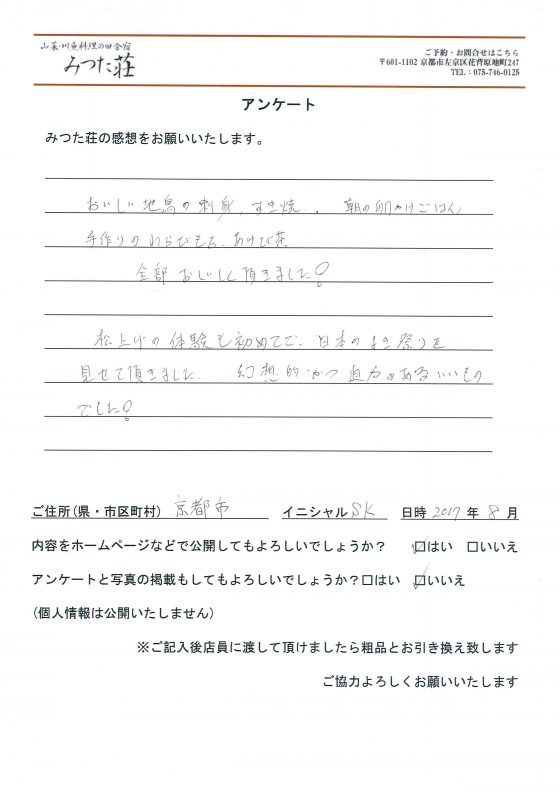 山菜・川魚料理の田舎宿
みつた荘
ご予約・お問合せはこちら
〒601-1102 京都市左京区花脊原地町247
TEL：075-746-0125
アンケート
みつた荘の感想をお願いいたします。
おいしい地鳥の刺身、すき焼、朝の卵かけごはん
手作りのわらびもち、あけび茶
全部おいしく頂きました!
松上げの体験も初めてで、日本のよき祭りを
見せて頂きました。 幻想的かつ迫力のあるいいもの
でした!
ご住所(県・市区町村) 京都市 イニシャル SK 日時 2017 年 8 月
内容をホームページなどで公開してもよろしいでしょうか？ ☑はい □いいえ
アンケートと写真の掲載もしてもよろしいでしょうか？□はい ☑いいえ
(個人情報は公開いたしません)
※ご記入後店員に渡して頂けましたら粗品とお引き換え致します
ご協力よろしくお願いいたします